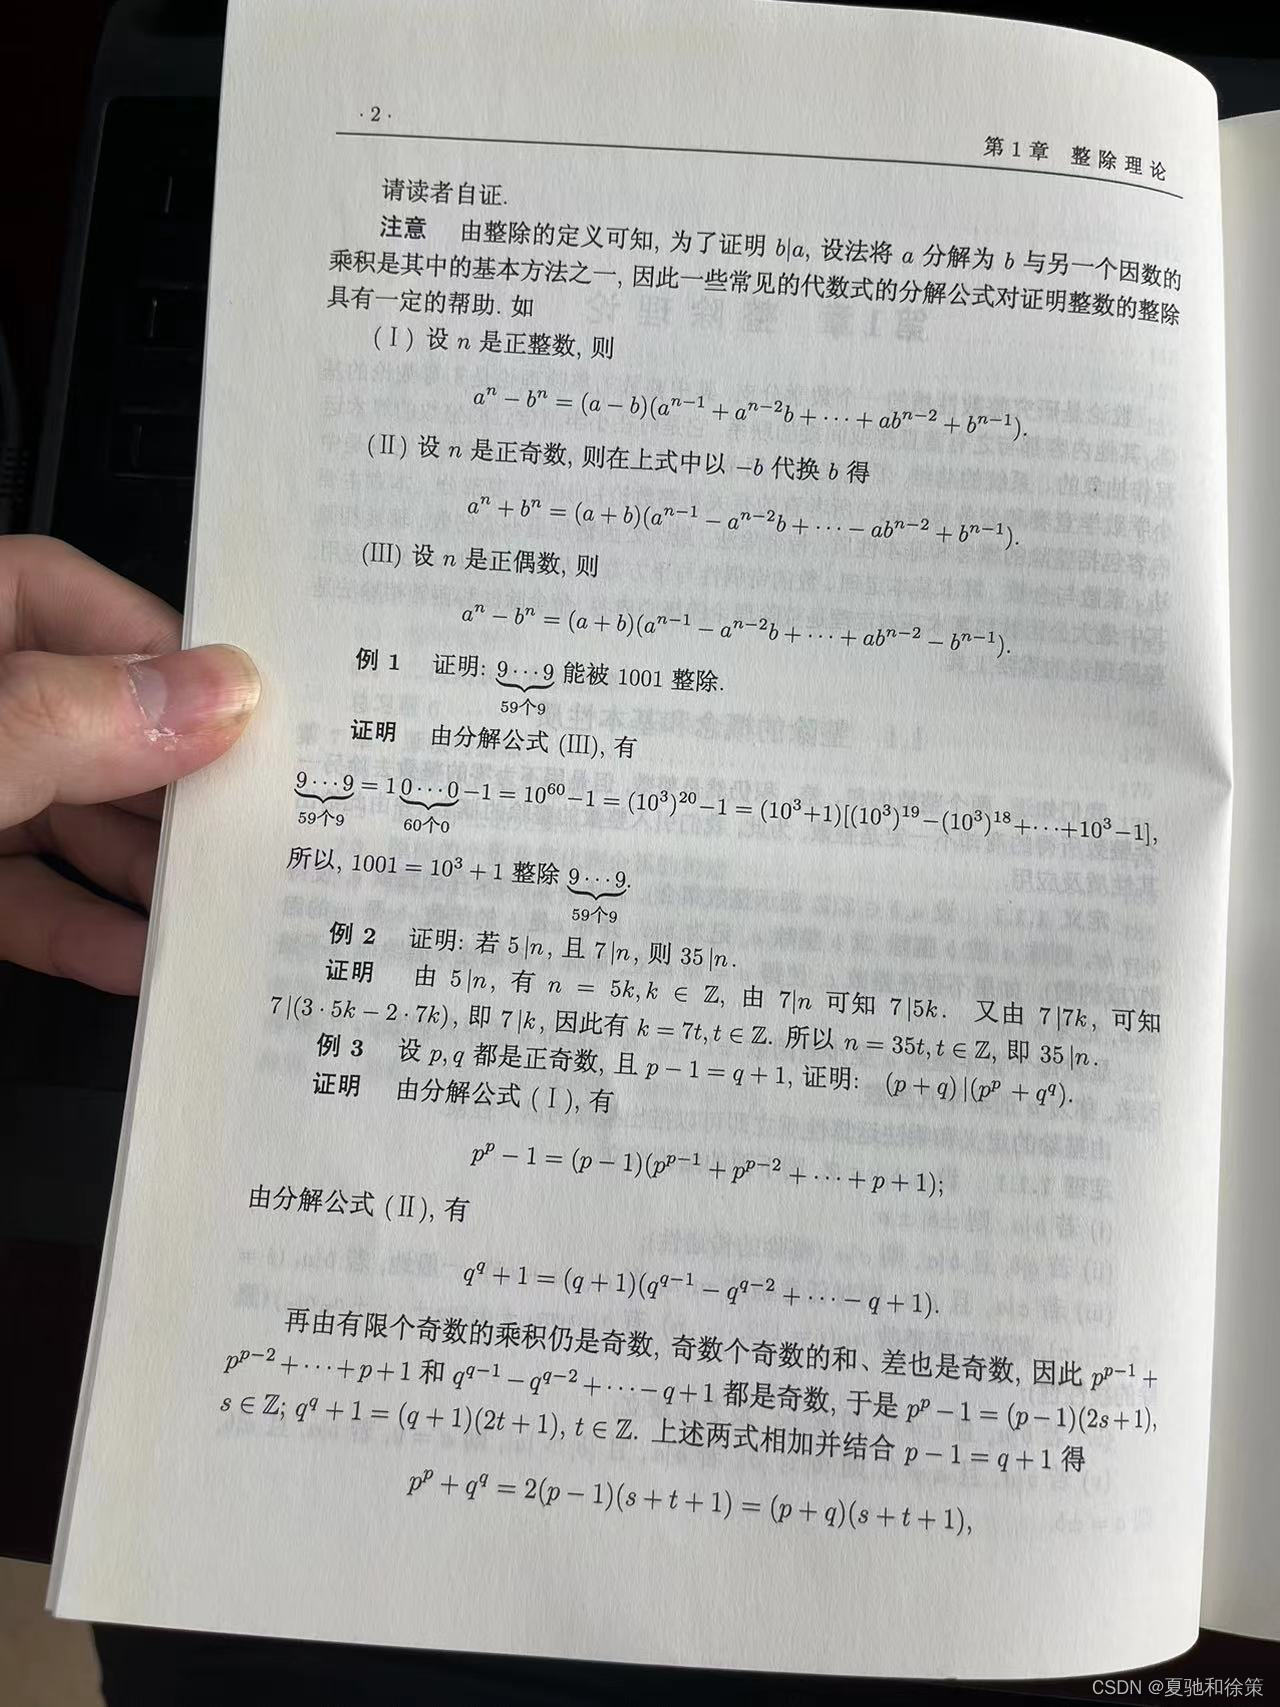 ·2·
第1章 整除理论
请读者自证.
注意 由整除的定义可知, 为了证明 b|a, 设法将 a 分解为 b 与另一个因数的
乘积是其中的基本方法之一, 因此一些常见的代数式的分解公式对证明整数的整除
具有一定的帮助. 如
(Ⅰ) 设 n 是正整数, 则
aⁿ − bⁿ = (a − b)(aⁿ⁻¹ + aⁿ⁻²b + ··· + abⁿ⁻² + bⁿ⁻¹).
(Ⅱ) 设 n 是正奇数, 则在上式中以 −b 代换 b 得
aⁿ + bⁿ = (a + b)(aⁿ⁻¹ − aⁿ⁻²b + ··· − abⁿ⁻² + bⁿ⁻¹).
(Ⅲ) 设 n 是正偶数, 则
aⁿ − bⁿ = (a + b)(aⁿ⁻¹ − aⁿ⁻²b + ··· + abⁿ⁻² − bⁿ⁻¹).
例 1 证明: 9···9 能被 1001 整除.
59个9
证明 由分解公式 (Ⅲ), 有
9···9 = 10···0 −1 = 10⁶⁰ −1 = (10³)²⁰ −1 = (10³+1)[(10³)¹⁹ −(10³)¹⁸ +···+10³ −1],
59个9 60个0
所以, 1001 = 10³ + 1 整除 9···9.
59个9
例 2 证明: 若 5|n, 且 7|n, 则 35|n.
证明 由 5|n, 有 n = 5k, k ∈ ℤ, 由 7|n 可知 7|5k. 又由 7|7k, 可知
7|(3·5k − 2·7k), 即 7|k, 因此有 k = 7t, t ∈ ℤ. 所以 n = 35t, t ∈ ℤ, 即 35|n.
例 3 设 p, q 都是正奇数, 且 p − 1 = q + 1, 证明: (p + q)|(pᵖ + q^q).
证明 由分解公式 (Ⅰ), 有
pᵖ − 1 = (p − 1)(pᵖ⁻¹ + pᵖ⁻² + ··· + p + 1);
由分解公式 (Ⅱ), 有
q^q + 1 = (q + 1)(q^(q−1) − q^(q−2) + ··· − q + 1).
再由有限个奇数的乘积仍是奇数, 奇数个奇数的和、差也是奇数, 因此 pᵖ⁻¹ +
pᵖ⁻² + ··· + p + 1 和 q^(q−1) − q^(q−2) + ··· − q + 1 都是奇数, 于是 pᵖ − 1 = (p − 1)(2s + 1),
s ∈ ℤ; q^q + 1 = (q + 1)(2t + 1), t ∈ ℤ. 上述两式相加并结合 p − 1 = q + 1 得
pᵖ + q^q = 2(p − 1)(s + t + 1) = (p + q)(s + t + 1),
CSDN @夏驰和徐策